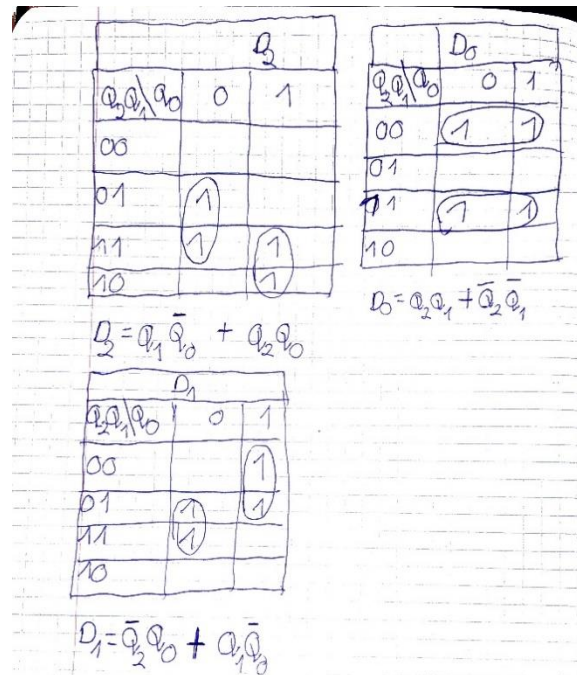 D₂
Q₂Q₁\Q₀ 0 1
00
01 1
11 1 1
10 1
D₂ = Q₁Q̄₀ + Q₂Q₀
D₀
Q₂Q₁\Q₀ 0 1
00 1 1
01
11 1 1
10
D₀ = Q₂Q₁ + Q̄₂Q̄₁
D₁
Q₂Q₁\Q₀ 0 1
00 1
01 1 1
11 1
10
D₁ = Q̄₂Q₀ + Q₁Q̄₀